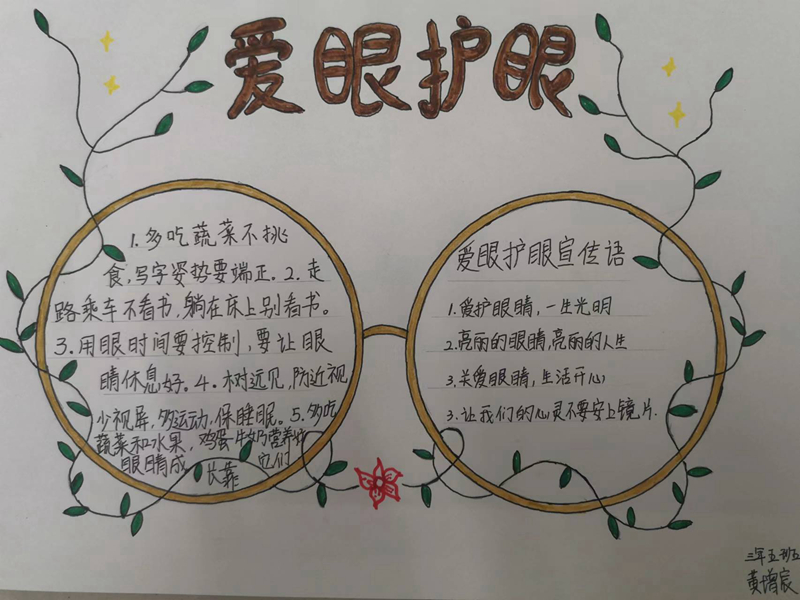 爱眼护眼
1.多吃蔬菜不挑
食,写字姿势要端正.2.走
路乘车不看书,躺在床上别看书。
3.用眼时间要控制,要让眼
睛休息好.4.木对远见,防近视
少视屏,多运动,保睡眠。5.多吃
蔬菜和水果,鸡蛋牛奶营养
眼睛成
长靠
它们
爱眼护眼宣传语
1.爱护眼睛,一生光明
2.亮丽的眼睛,亮丽的人生
3.关爱眼睛,生活开心
3.让我们的心灵不要安上镜片.
三年五班
黄增宸